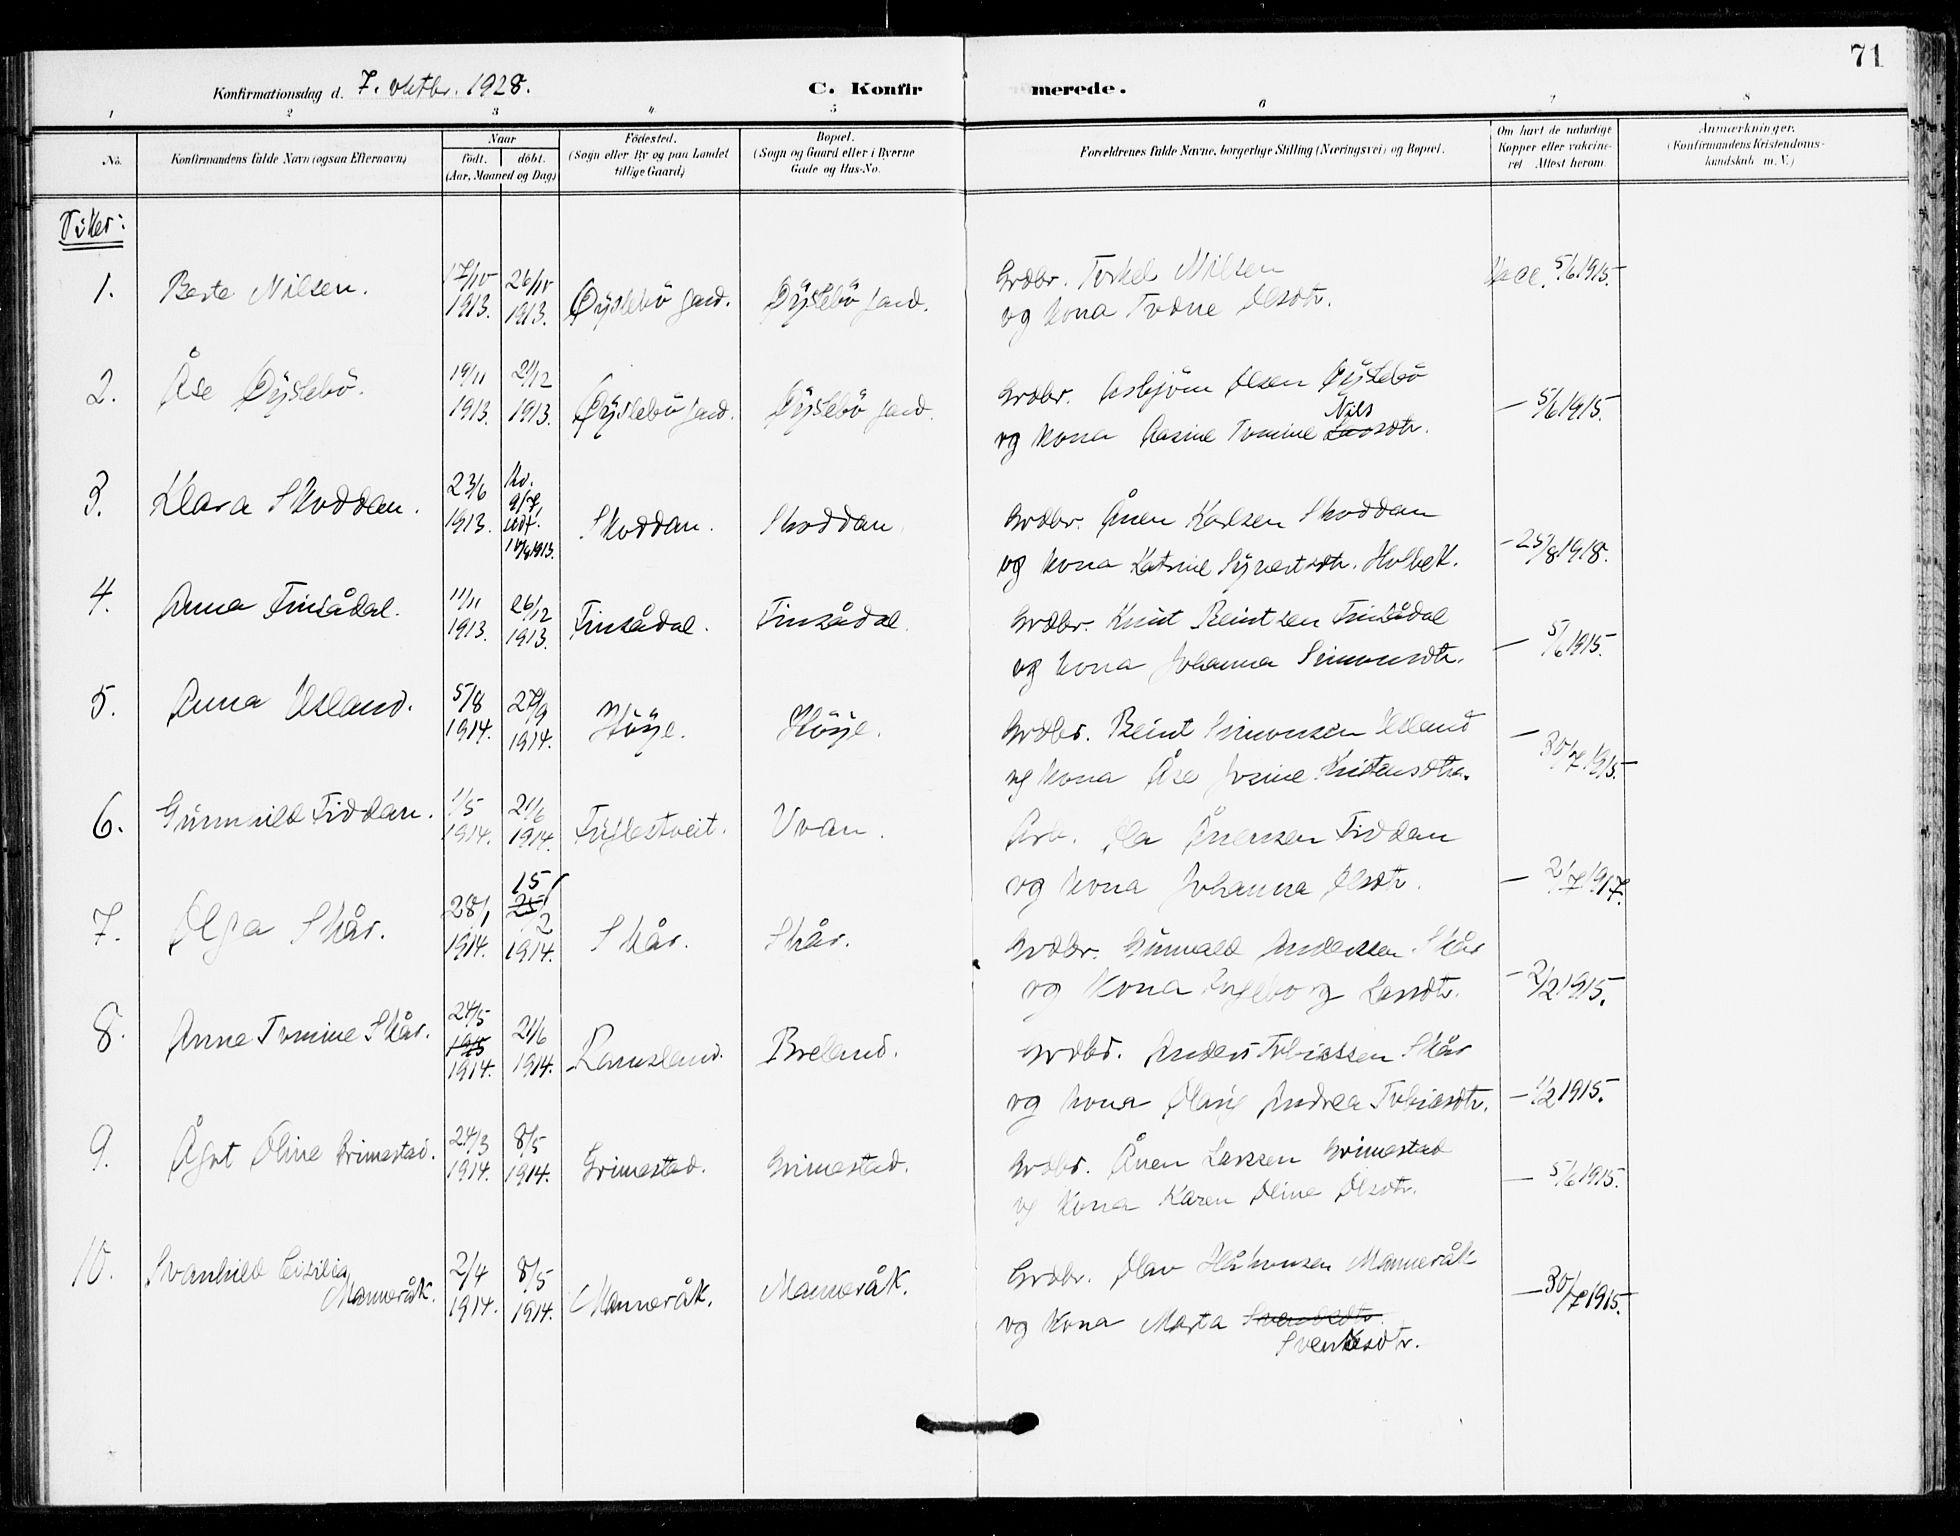 71
Konfirmationsdag d. 7. oktbr. 1928. C. Konfir merede.
1 2 3 4 5 6 7 8
No.
Konfirmandens fulde Navn (ogsaa Efternavn)
Naar
født. døbt.
(Aar, Maaned og Dag)
Födested.
(Sogn eller By og paa Landet
tillige Gaard)
Bopæl.
(Sogn og Gaard eller i Byerne
Gade og Hus-No.
Forældrenes fulde Navne, borgerlige Stilling (Næringsvei) og Bopæl.
Om havt de naturlige
Kopper eller vakcine-
ret Attest herom.
Anmærkninger.
(Konfirmandens Kristendoms-
kundskab m. V.)
Piker:
1. Berte Nilsen. 17/10 1913. 26/10 1913. Øyslebö gard. Øyslebö gard. Grdbr. Torkel Nilsen
og kona Todne Olsdtr. Vacc. 5/6 1915
2. Åse Øyslebö. 19/11 1913. 21/12 1913. Øyslebö gard. Øyslebö gard. Grdbr. Asbjörn Olsen Øyslebö
og kona Aasine Tomine Lars Nilsdtr. — 5/6 1915.
3. Klara Skoddan. 23/6 1913. 9/7, 1913. Skoddan. Skoddan. Grdbr. Ånen Karlsen Skoddan
og kona Katrine Syvertsdtr. Holbek. — 25/8 1918.
4. Anna Finsådal. 11/11 1913. 26/12 1913. Finsådal. Finsådal. Grdbr. Knut Beintsen Finsådal
og kona Johanna Simonsdtr. — 5/6 1915.
5. Anna Usland. 5/8 1914. 27/9 1914. Höije. Höije. Grdbr. Beint Simonsen Usland
og kona Åse Josine Kristensdtr. — 30/7 1915
6. Gunnvild Fiddan. 1/5 1914. 21/6 1914. Tuftestveit. Uvan. Arb. Ola Ånensen Fiddan
og kona Johanna Olsdtr. — 2/7 1917.
7. Olga Skår. 28/1 1914. 25 15/2 1914. Skår. Skår. Grdbr. Gunvald Anderssen Skår
og kona Ingeborg Larsdtr. — 2/2 1915.
8. Anne Tomine Skår. 24/5 1915 1914. 21/6 1914. Ramsland. Breland. Grdbr. Anders Tobiassen Skår
og kona Andrea Tobiasdtr. — 1/2 1915.
9. Ågot Oline Grimestad. 24/3 1914. 8/5 1914. Grimestad. Grimestad. Grdbr. Ånen Larssen Grimestad
og kona Karen Oline Olsdtr. — 5/6 1915.
10. Svanhild Cisilia
Manneråk. 2/4 1914. 8/5 1914. Manneråk. Manneråk. Grdbr. Olav Håkonsen Manneråk
og kona Marta
Svenkesdtr. — 30/7 1915.